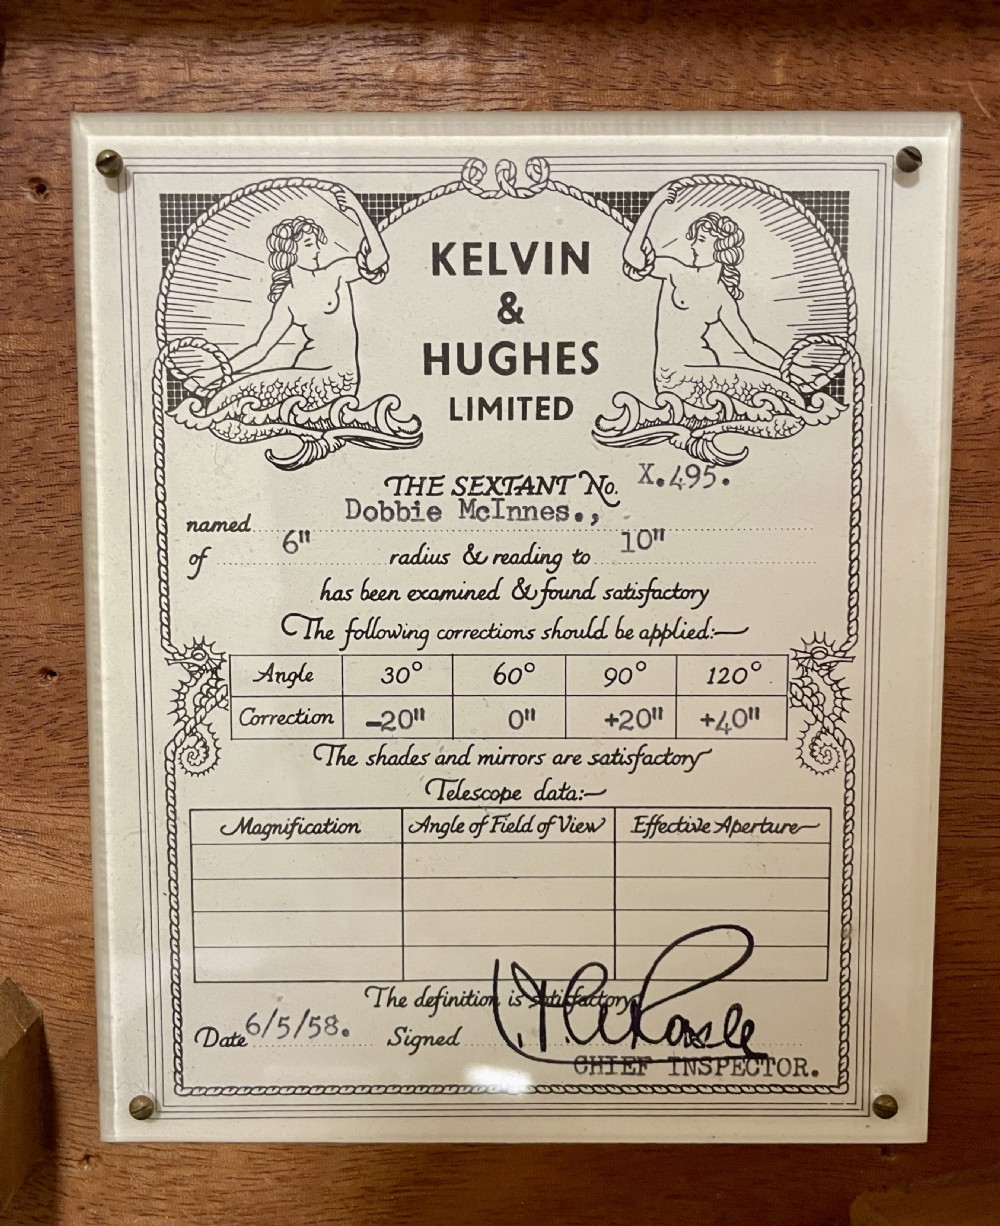 KELVIN
&
HUGHES
LIMITED
THE SEXTANT No. X.495.
named Dobbie McInnes.,
of 6" radius & reading to 10"
has been examined & found satisfactory
The following corrections should be applied:—
Angle 30° 60° 90° 120°
Correction -20" 0" +20" +40"
The shades and mirrors are satisfactory
Telescope data:—
Magnification Angle of Field of View Effective Aperture
The definition is satisfactory
Date 6/5/58. Signed
CHIEF INSPECTOR.